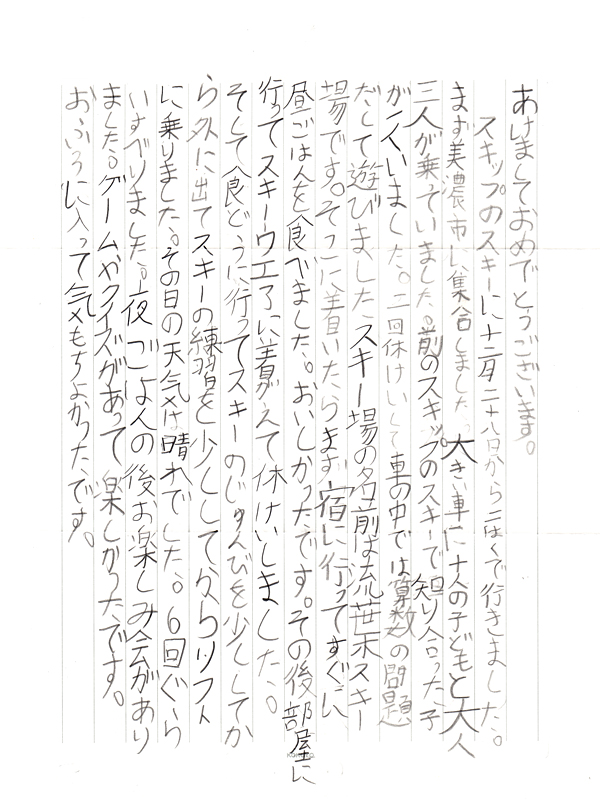 あけましておめでとうございます。
スキップのスキーに十二月二十八日から二はくで行きました。
まず美濃市に集合しました。大きい車に十人の子どもと大人
三人が乗っていました。前のスキップのスキーで知り合った子
がくいました。二回休けいして車の中では算数の問題
だして遊びましたスキー場の名前は流葉スキー
場です。そこに着いたらまず宿に行ってすぐに
昼ごはんを食べました。おいしかったです。その後部屋に
行ってスキーウエアに着がえて休けいしました。
そして食どうに行ってスキーのじゅんびを少くしてか
ら外に出てスキーの練習を少くしてからリフト
に乗りました。その日の天気は晴れでした。6回ぐら
いすべりました。夜ごはんの後お楽しみ会があり
ました。ゲームやクイズがあって楽しかったです。
おふろに入って気もちよかったです。